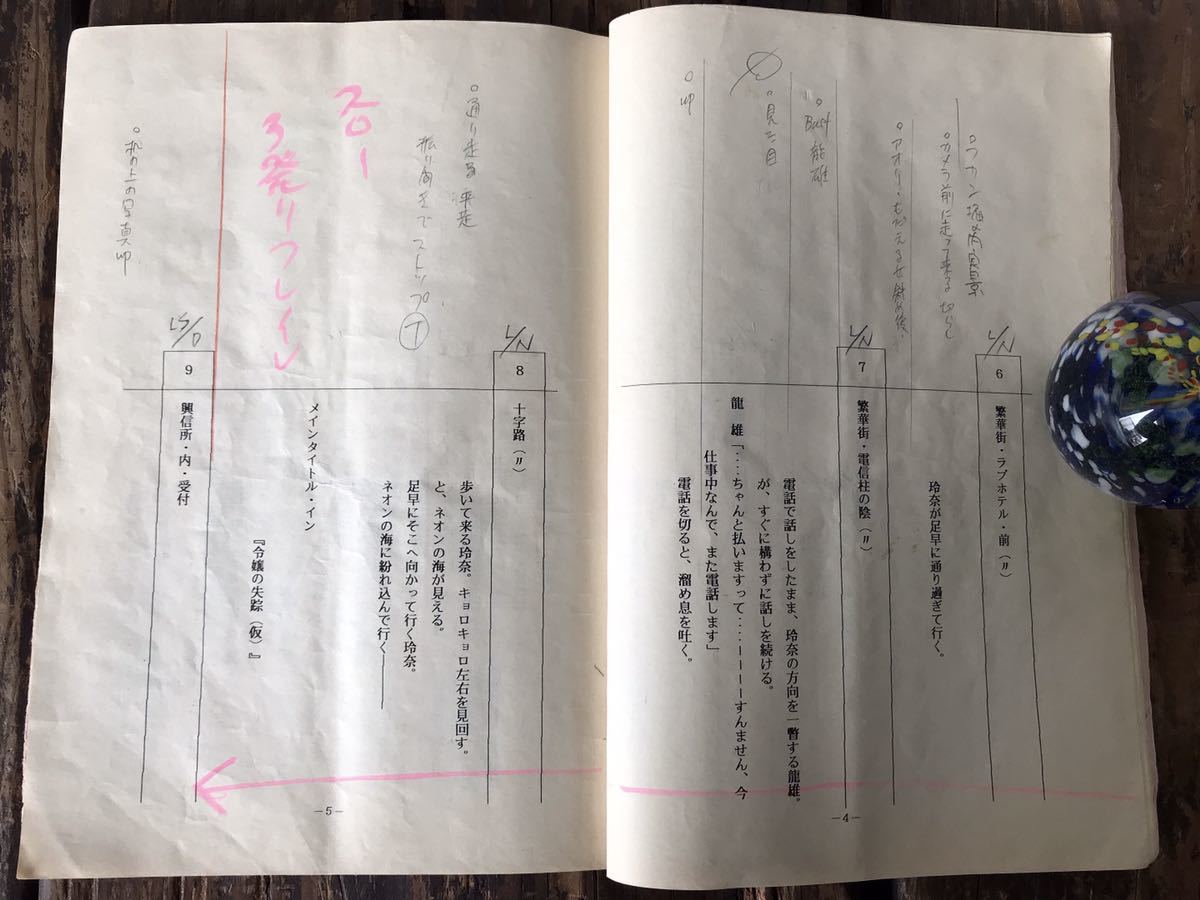 L/N
6
繁華街・ラブホテル・前(〃)
玲奈が足早に通り過ぎて行く。
。カメラ前に走って来る
L/N
7
繁華街・電信柱の陰(〃)
電話で話しをしたまま、玲奈の方向を一瞥する龍雄。
が、すぐに構わずに話しを続ける。
龍雄「‥‥ちゃんと払いますって‥‥ーーーーすんません、今
仕事中なんで、また電話します」
電話を切ると、溜め息を吐く。
。Bust 龍雄
。見た目
—4—
L/N
8
十字路(〃)
歩いて来る玲奈。キョロキョロ左右を見回す。
と、ネオンの海が見える。
足早にそこへ向かって行く玲奈。
ネオンの海に紛れ込んで行く———
。通り走る
振り向きでストップ
T
スロー
3発リフレイン
メインタイトル・イン
『令嬢の失踪(仮)』
LS/D
9
興信所・内・受付
。机の上の写真
—5—